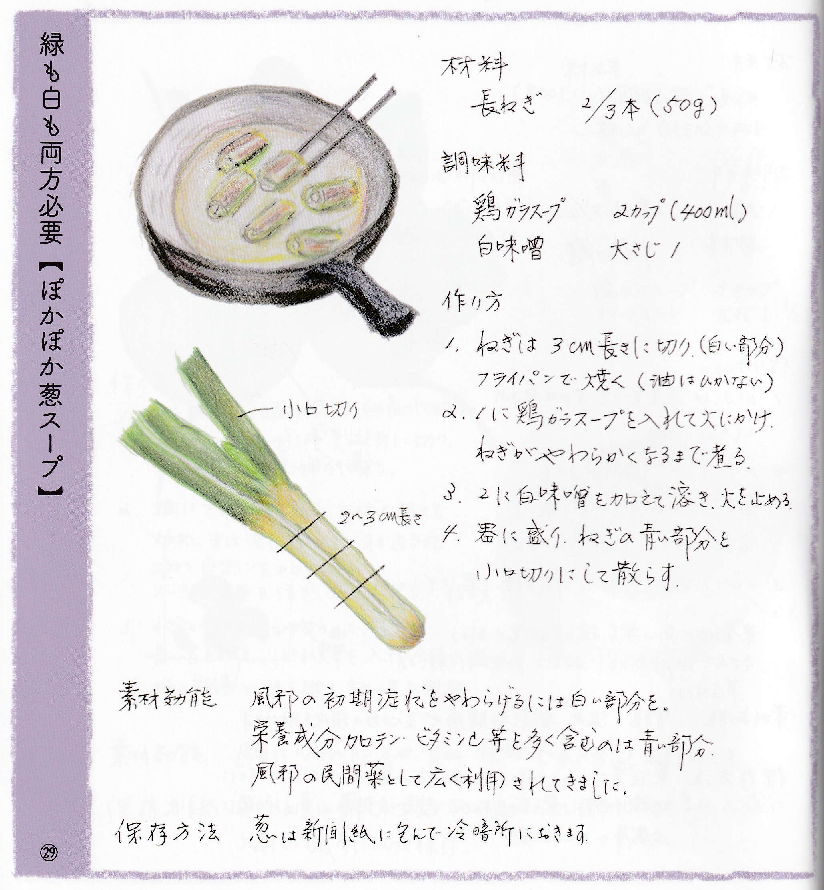 緑も白も両方必要【ぽかぽか葱スープ】
材料
長ねぎ 2/3本(50g)
調味料
鶏ガラスープ 2カップ(400ml)
白味噌 大さじ1
作り方
1. ねぎは3cm長さに切り、(白い部分)
フライパンで焼く(油はひかない)
2. 1に鶏ガラスープを入れて火にかけ、
ねぎがやわらかくなるまで煮る。
3. 2に白味噌を加えて溶き、火を止める。
4. 器に盛り、ねぎの青い部分を
小口切りにして散らす。
小口切り
2〜3cm長さ
素材効能 風邪の初期症状をやわらげるには白い部分を。
栄養成分カロテン・ビタミンC等を多く含むのは青い部分。
風邪の民間薬として広く利用されてきました。
保存方法 葱は新聞紙に包んで冷暗所におきます。
㉙